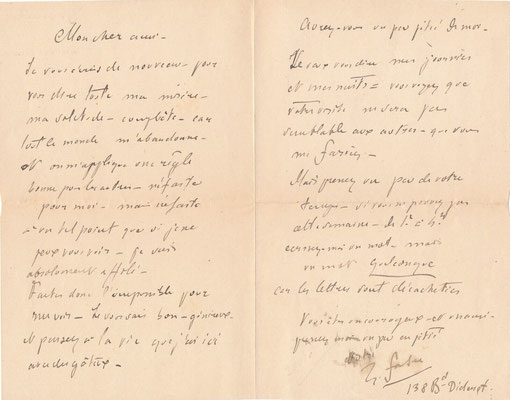 Mon cher ami -
Je vous écris de nouveau - pour
vous dire toute ma misère -
ma solitude - complète - car
tout le monde m'abandonne -
Et on m'applique une règle
bonne pour les autres - néfaste
pour moi - mais néfaste
à un tel point que si je ne
peux vous voir - je suis
absolument affolé -
Faites donc l'impossible pour
me voir - Je vous sais bon - généreux
et pensez à la vie que j'ai ici
avec du gâteux -
Ayez-vous un peu pitié de moi -
Je veux vous dire mes journées
et mes nuits = vous voyez que
votre visite ne sera pas
semblable aux autres - que vous
me faisiez -
Mais prenez un peu de votre
temps - si vous ne pouvez pas
cette semaine - de 1h à 4h
écrivez-moi un mot - mais
un mot quelconque
car les lettres sont décachetées
Venez en
prenez moi un peu en pitié
138 Bd Diderot